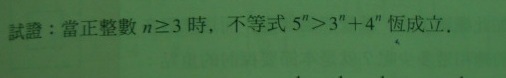 試證：當正整數 n≥3 時，不等式 5ⁿ>3ⁿ+4ⁿ 恆成立.